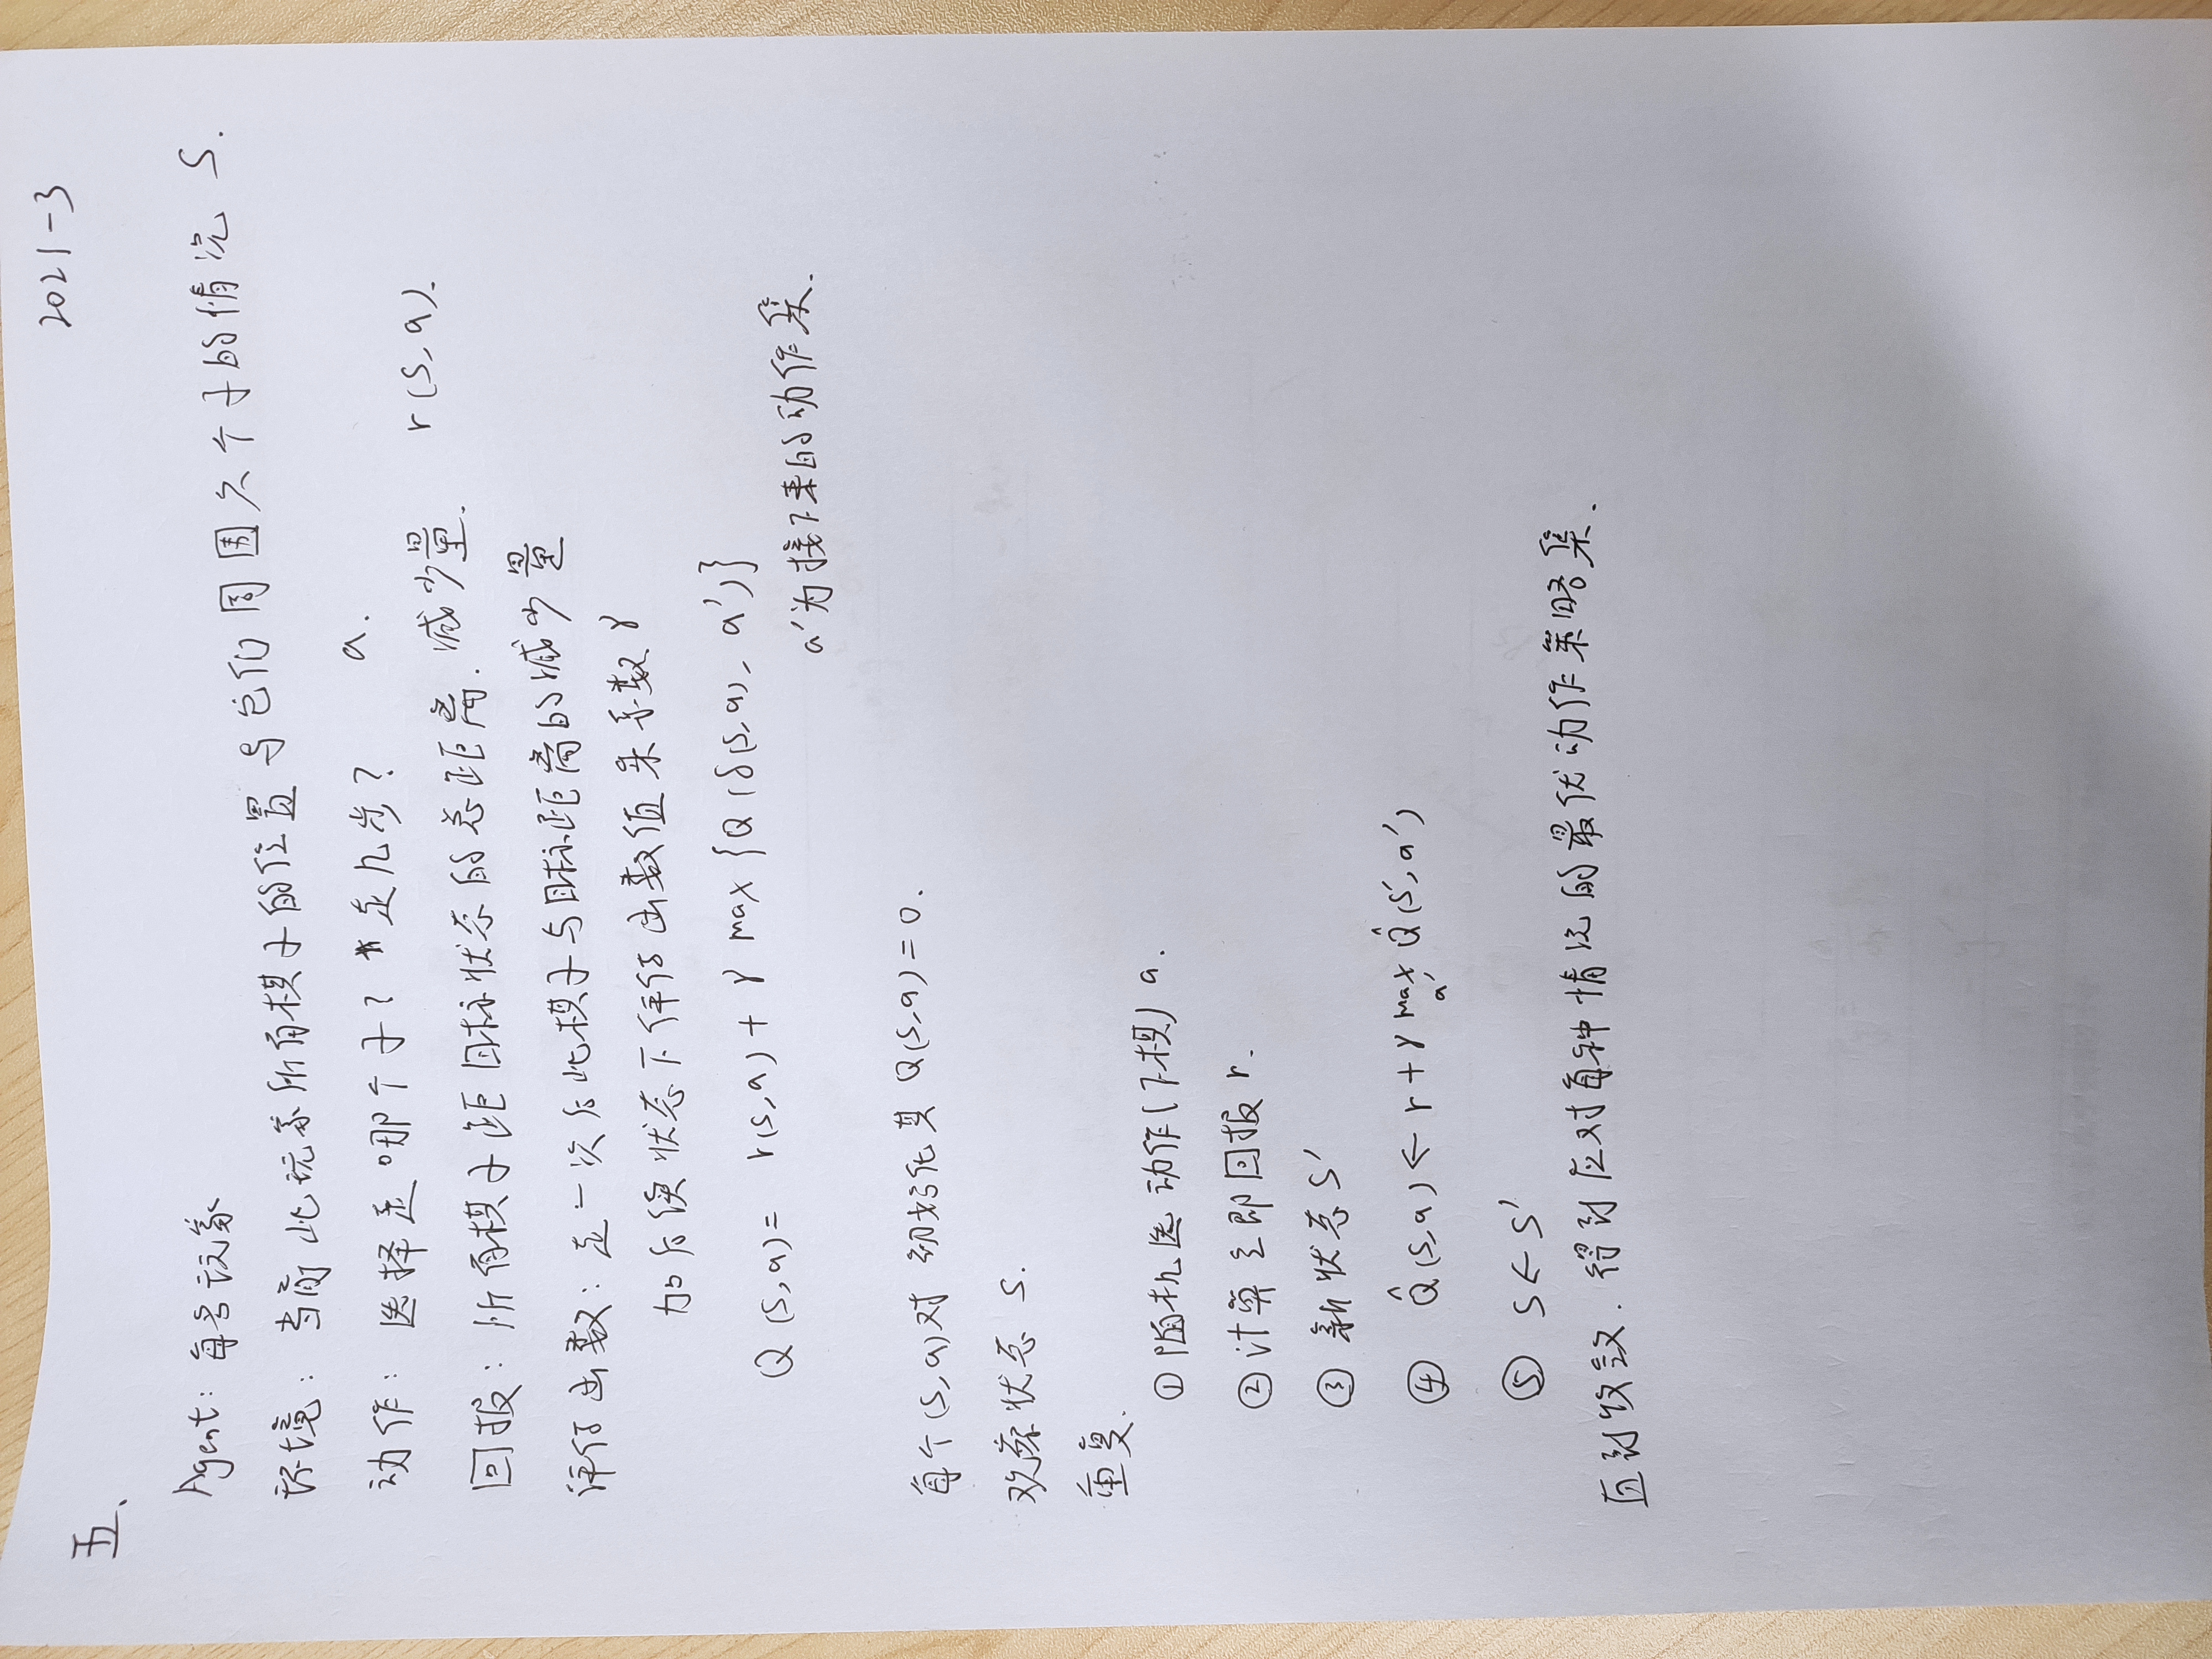 2021-3
五、
Agent: 每当议家
环境: 当前此玩家所有棋子的位置与它们周围六个子的情况 S.
动作: 选择走哪个子? 走几步? a.
回报: 所有棋子距目标状态的总距离. 减少量. r(s,a).
评价函数: 走一次后此棋子与目标距离的减少量
加后续状态下评价函数值乘系数γ
Q(s,a)= r(s,a) + γ max{Q(δ(s,a), a')}
a'为接下来的动作集.
每个(s,a)对 初始化其 Q(s,a)=0.
观察状态 s.
重复.
① 随机选动作(下棋) a.
② 计算立即回报 r.
③ 新状态 s'
④ Q̂(s,a) ← r + γ max a' Q̂(s',a')
⑤ s ← s'
直到收敛. 得到应对每种情况的最优动作策略集.